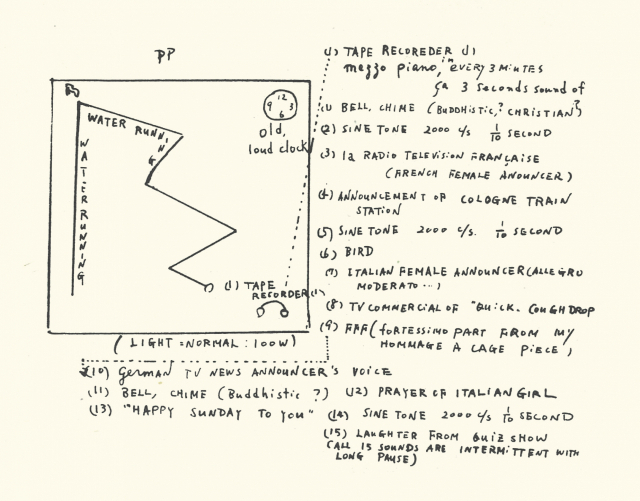 PP
(1) TAPE RECOREDER (1)
mezzo piano, in EVERY 3 MINUTES
ça 3 seconds sound of
(1) BELL, CHIME (BUDDHISTIC,? CHRISTIAN?)
(2) SINE TONE 2000 c/s 1/10 SECOND
(3) la RADIO TELEVISION FRANÇAISE
(FRENCH FEMALE ANOUNCER)
(4) ANNOUNCEMENT OF COLOGNE TRAIN
STATION
(5) SINE TONE 2000 c/s. 1/10 SECOND
(6) BIRD
(7) ITALIAN FEMALE ANNOUNCER (ALLEGRO
MODERATO ...)
(8) TV COMMERCIAL OF "QUICK. COUGH DROP
(9) FFF (fORTESSIMO PART FROM MY
HOMMAGE A CAGE PIECE)
WATER RUNNING
WATER RUNNING
12
9 3
6
old,
loud clock
(1) TAPE
RECORDER (1)
(LIGHT = NORMAL : 100W)
(10) German TV NEWS ANNOUNCER'S VOICE
(11) BELL, CHIME (Buddhistic ?) (12) PRAYER OF ITALIAN GIRL
(13) "HAPPY SUNDAY TO YOU" (14) SINE TONE 2000 c/s 1/10 SECOND
(15) LAUGHTER FROM QUIZ SHOW
(ALL 15 SOUNDS ARE INTERMITTENT WITH
LONG PAUSE)